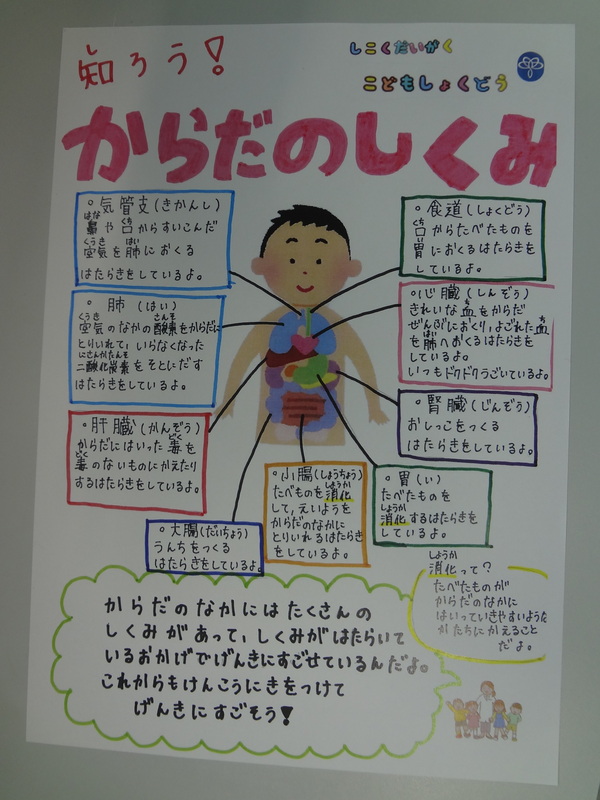 知ろう！
しこくだいがく
こどもしょくどう
からだのしくみ
。気管支(きかんし)
鼻や口からすいこんだ
空気を肺におくる
はたらきをしているよ。
。肺(はい)
空気のなかの酸素をからだに
とりいれて、いらなくなった
二酸化炭素をそとにだす
はたらきをしているよ。
。肝臓(かんぞう)
からだにはいった毒を
毒のないものにかえたり
するはたらきをしているよ。
。大腸(だいちょう)
うんちをつくる
はたらきをしているよ。
。食道(しょくどう)
口からたべたものを
胃におくるはたらきを
しているよ。
。心臓(しんぞう)
きれいな血をからだ
ぜんぶにおくり、よごれた血
を肺へおくるはたらきを
しているよ。
いつもドクドクうごいているよ。
。腎臓(じんぞう)
おしっこをつくる
はたらきをしているよ。
。小腸(しょうちょう)
たべものを消化
して、えいようを
からだのなかに
とりいれるはたらき
をしているよ。
。胃(い)
たべたものを
消化するはたらきを
しているよ。
消化って？
たべたものが
からだのなかに
はいっていきやすいような
かたちにかえること
だよ。
からだのなかにはたくさんの
しくみがあって、しくみがはたらいて
いるおかげでげんきにすごせているんだよ。
これからもけんこうにきをつけて
げんきにすごそう！